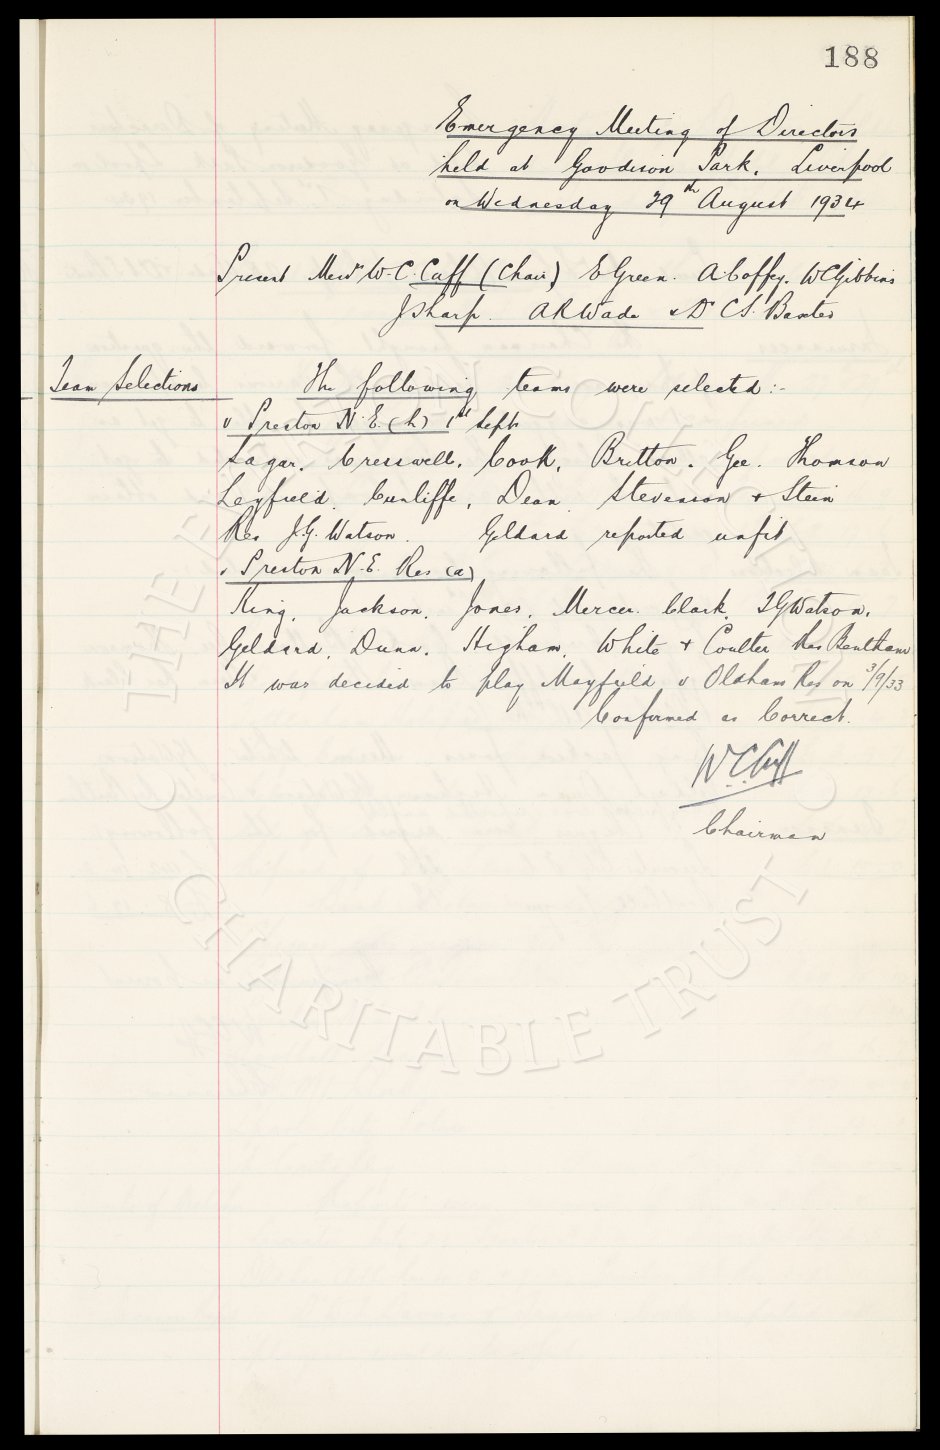 188
Emergency Meeting of Directors
held at Goodison Park, Liverpool
on Wednesday 29th August 1934
Present Messrs W.C. Cuff (Chair) E Green. A Coffey. WC Gibbins
J Sharp. A R Wade & Dr C S. Baxter
Team Selections The following teams were selected :-
v Preston N.E. (h) 1st Sept
Sagar. Cresswell. Cook. Britton. Gee. Thomson
Leyfield. Cunliffe. Dean. Stevenson & Stein
Res J.G. Watson. Geldard reported unfit
v Preston N.E. Res (a)
King, Jackson. Jones. Mercer. Clark. J G Watson.
Geldard. Dunn. Higham. White & Coulter Res Bentham
It was decided to play Mayfield v Oldham Res on 3/9/33
Confirmed as Correct.
W C Cuff
Chairman
THE EVERTON COLLECTION
CHARITABLE TRUST